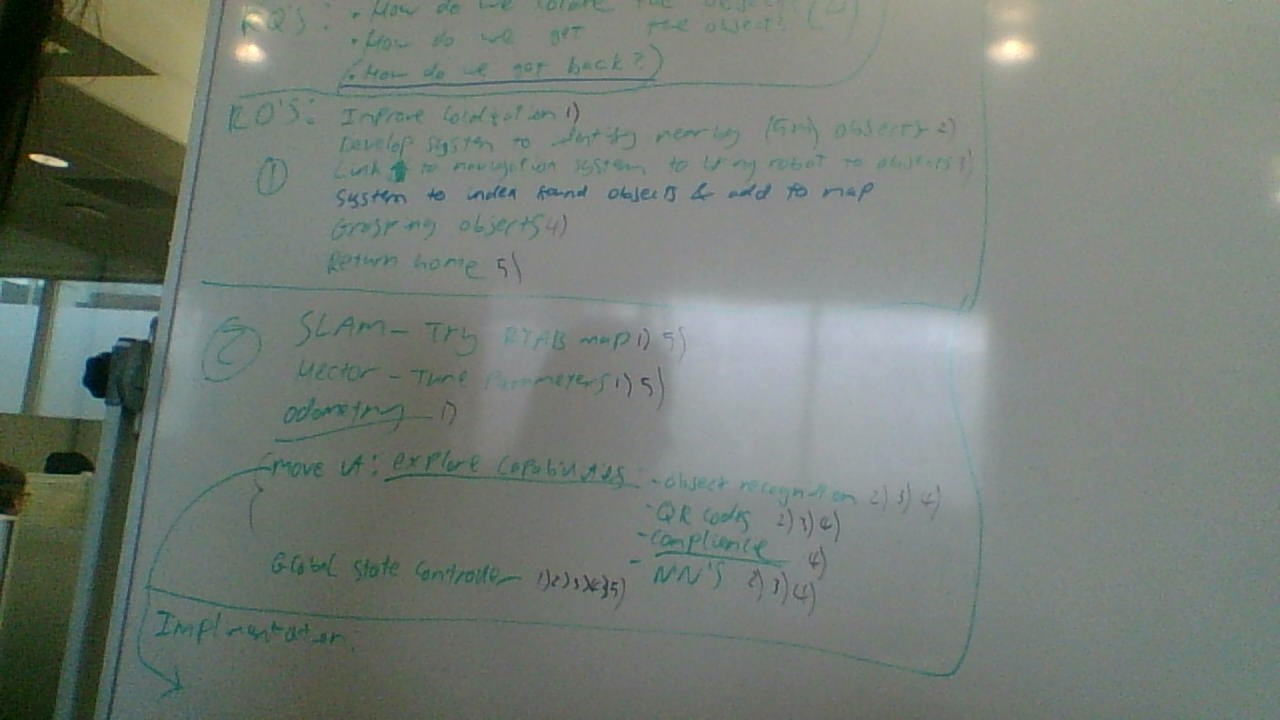 RQ's: • How do we locate the object? (4)
• How do we get the object?
(• How do we get back?)
RO'S: Improve Localization 1)
Develop system to identify nearby (5m) objects 2)
① Link ↑ to navigation system to bring robot to objects 3)
System to index found objects & add to map
Grasping objects 4)
Return home 5)
② SLAM - Try RTAB map 1) 5)
Hector - Tune Parameters 1) 5)
odometry 1)
Move it: explore capabilities - object recognition 2) 3) 4)
- QR Codes 2) 3) 4)
- compliance 4)
Global State Controller 1)2)3)4)5) - NN'S 2) 3) 4)
Implmentation: